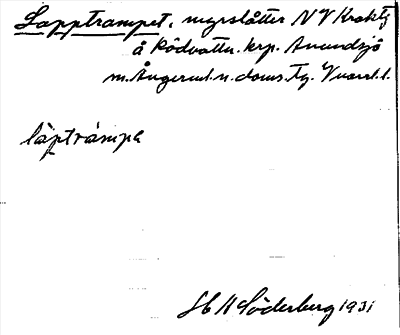 Lapptrampet, myrslåtter NV Kraktj
å Rödvattn. krp. Anundsjö
m. Ångerml. n. doms. Tg. V norrl. l.
làptrámpa
H A Söderberg 1931